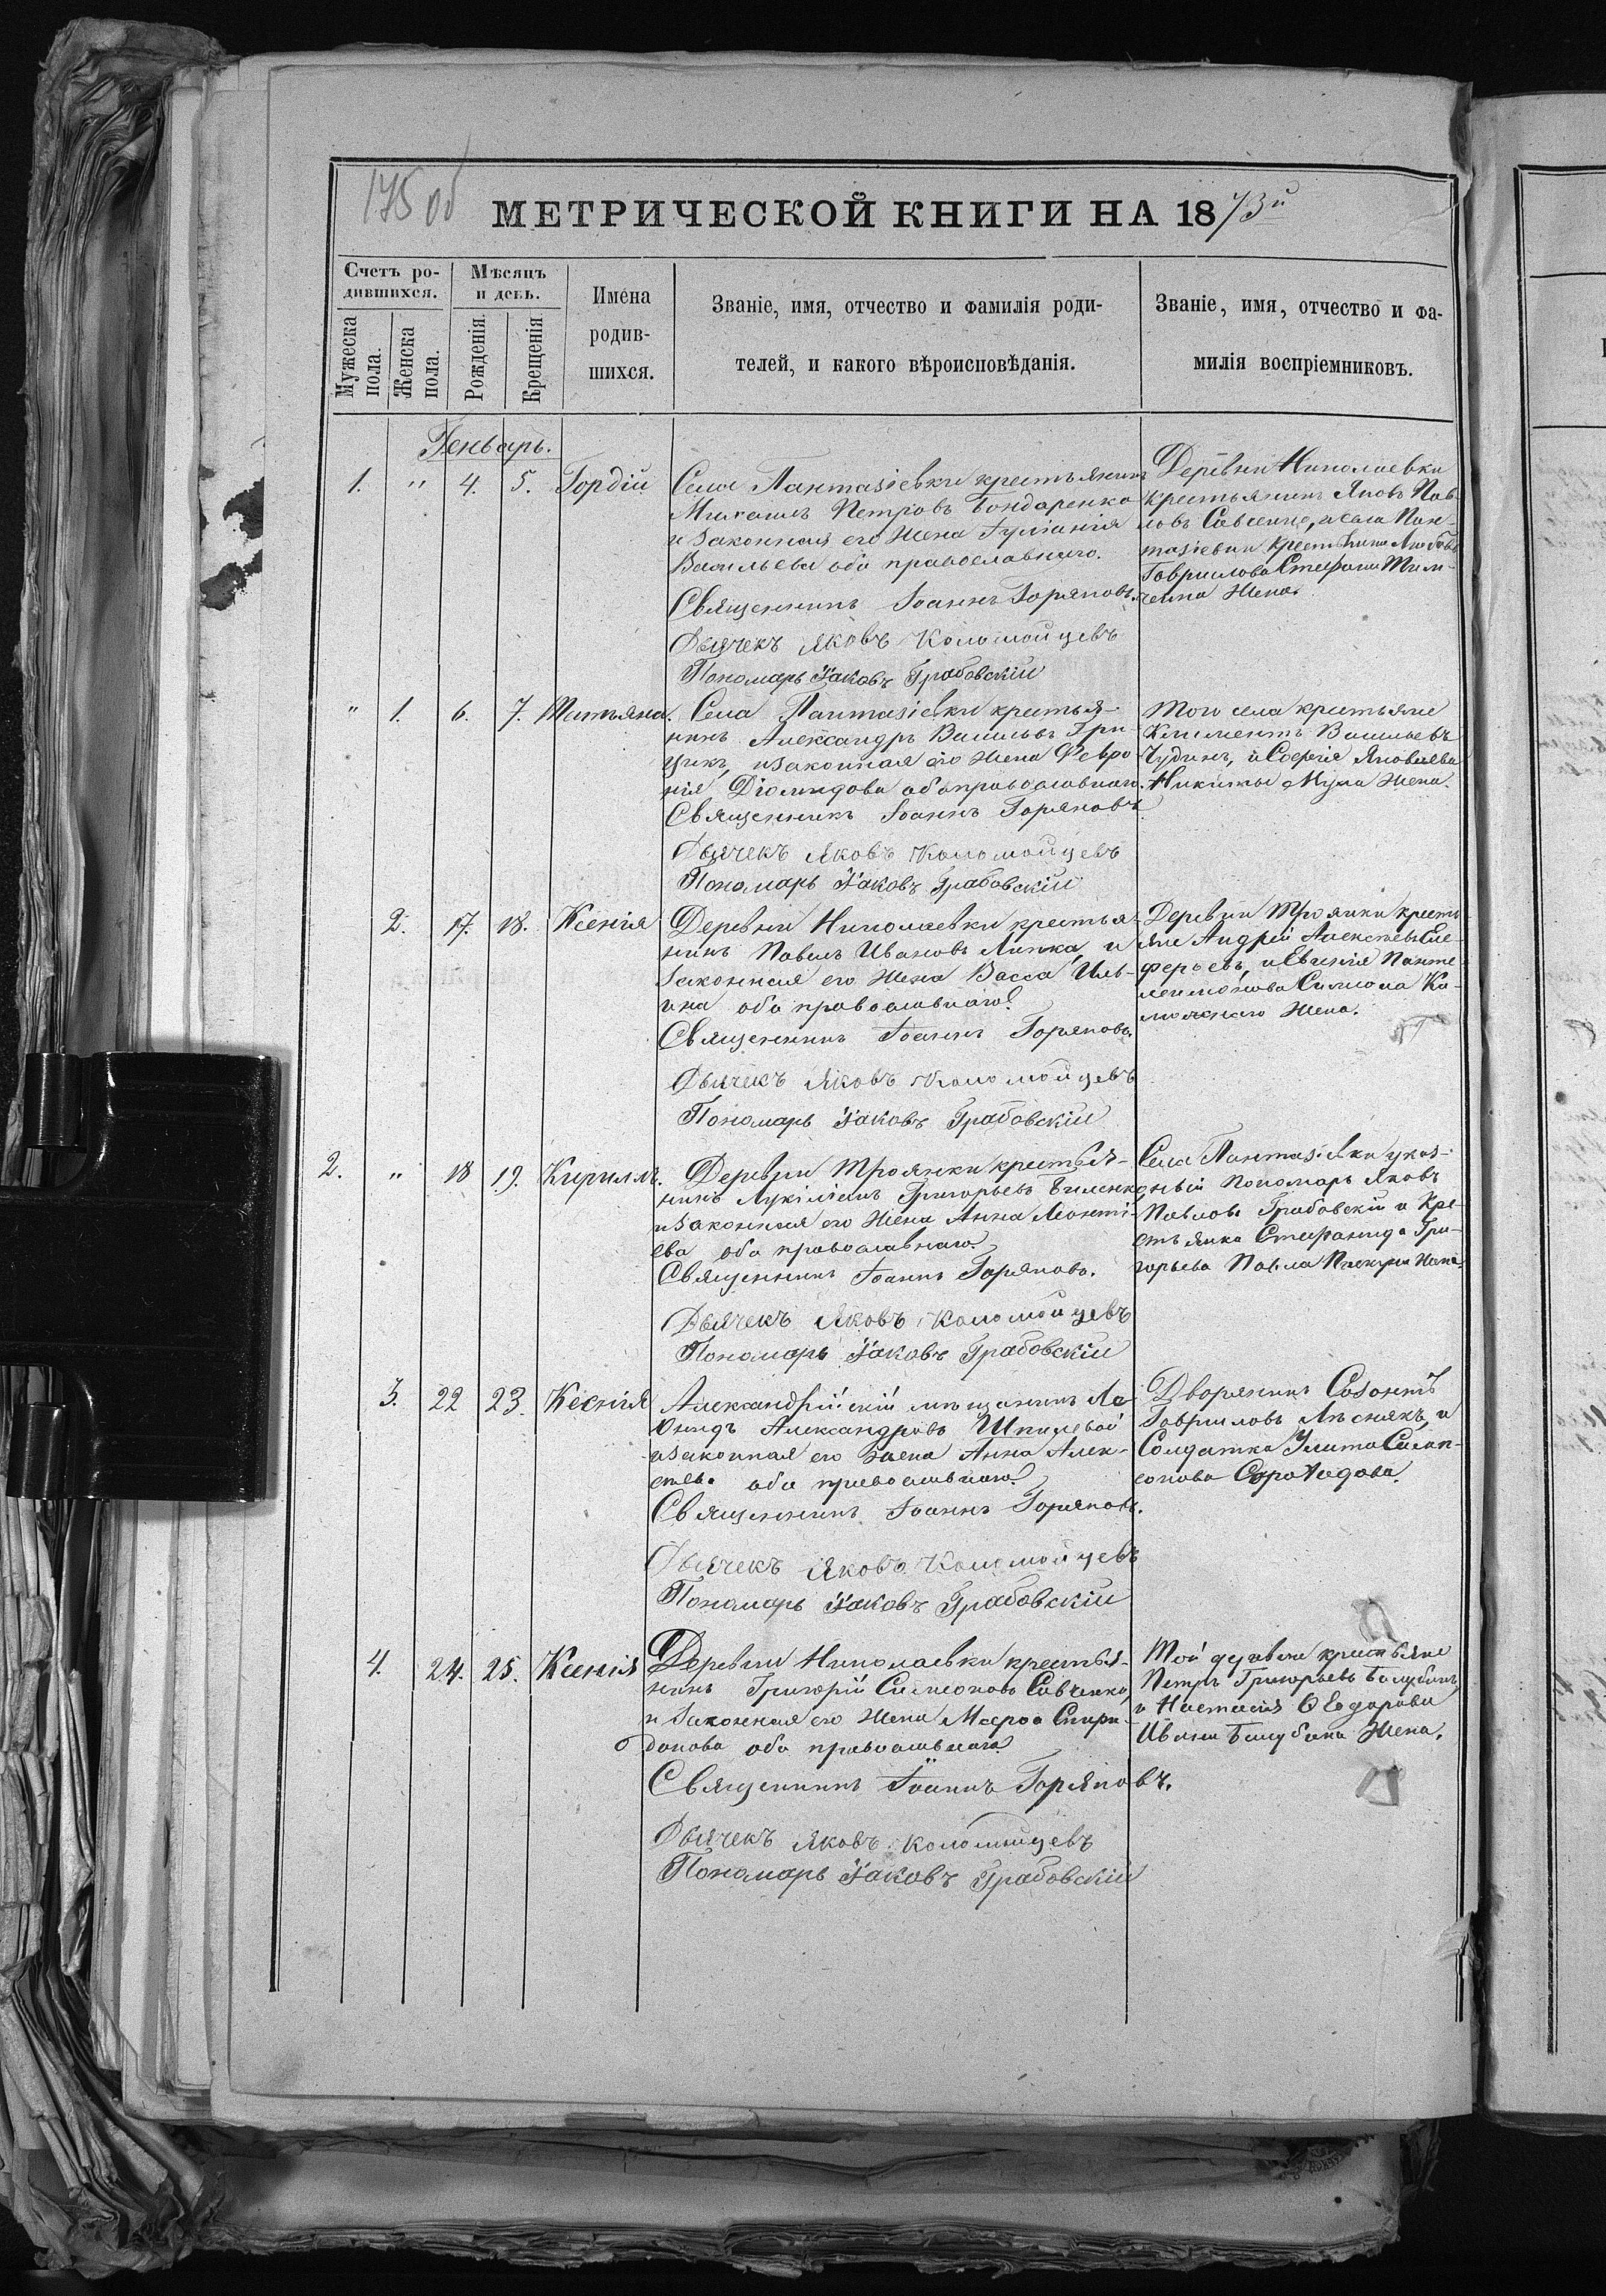 175 об
МЕТРИЧЕСКОЙ КНИГИ НА 1873й
Счетъ ро-
дившихся.
Мѣсяцъ
и день.
Мужеска
пола.
Женска
пола.
Рожденія.
Крещенія
Имена
родив-
шихся.
Званіе, имя, отчество и фамилія роди-
телей, и какого вѣроисповѣданія.
Званіе, имя, отчество и фа-
милія воспріемниковъ.
Генварь.
1. " 4. 5. Гордій
Села Пантазіевки крестьянинъ
Михаилъ Петровъ Бондаренко
и законная его жена Гуліанія
Васильева оба православнаго.
Священникъ Іоаннъ Горяновъ.
Дьячекъ Яковъ Коломойцевъ
Пономарь Іаковъ Грабовскій
Деревни Николаевки
крестьянинъ Яковъ Пав-
ловъ Савченко, и села Пан-
тазіевки крестьянина
Гаврилова Стефана Тим-
ченка жена.
" 1. 6. 7. Татьяна.
Села Пантазіевки крестья-
нинъ Александръ Васильевъ Гри
цикъ, и законная его жена Февро
нія Діомидова оба православнаго.
Священникъ Іоаннъ Горяновъ
Дьячекъ Яковъ Коломойцевъ
Пономарь Іаковъ Грабовскій
Того села крестьяне
Климентъ Васильевъ
Чудинъ, и Софія Яковлева
Никиты Мула жена.
2. 17. 18. Ксенія
Деревни Николаевки крестья-
нинъ Павелъ Ивановъ Липка, и
законная его жена Васса Иль-
ина оба православнаго.
Священникъ Іоаннъ Горяновъ.
Дьячекъ Яковъ Коломойцевъ
Пономарь Іаковъ Грабовскій
Деревни Троянки кресть-
яне Андрей Алексѣевъ Еле-
ферьевъ, и Евгенія Панте
леимонова Симеона Ка-
жена.
2. " 18 19. Кириллъ.
Деревни Троянки крестья-
нинъ Лукіліанъ Григорьевъ Биленко
и законная его жена Анна Леонті-
ева оба православнаго.
Священникъ Іоаннъ Горяновъ.
Дьячекъ Яковъ Коломойцевъ
Пономарь Іаковъ Грабовскій
Села Пантазіевки указ-
ный Пономарь Яковъ
Павловъ Грабовскій и Кре-
стьянка Стефанида Гри-
горьева Павла жена.
3. 22 23. Ксенія
Александрійскій мѣщанинъ Ле-
онидъ Александровъ Шпилевой
и законная его жена Анна Алек-
сѣева оба православнаго.
Священникъ Іоаннъ Горяновъ.
Дьячекъ Яковъ Коломойцевъ
Пономарь Іаковъ Грабовскій
Дворянинъ Созонтъ
Гавриловъ Лѣснякъ, и
Солдатка Улита Самп-
сонова
4. 24. 25. Ксенія
Деревни Николаевки крестья-
нинъ Григорій Симеоновъ Савченко,
и законная его жена Марфа Спири-
донова оба православнаго.
Священникъ Іоаннъ Горяновъ.
Дьячекъ Яковъ Коломойцевъ
Пономарь Іаковъ Грабовскій
Той деревни крестьяне
Петръ Григорьевъ
и Настасія Ѳеодорова
Ивана жена.